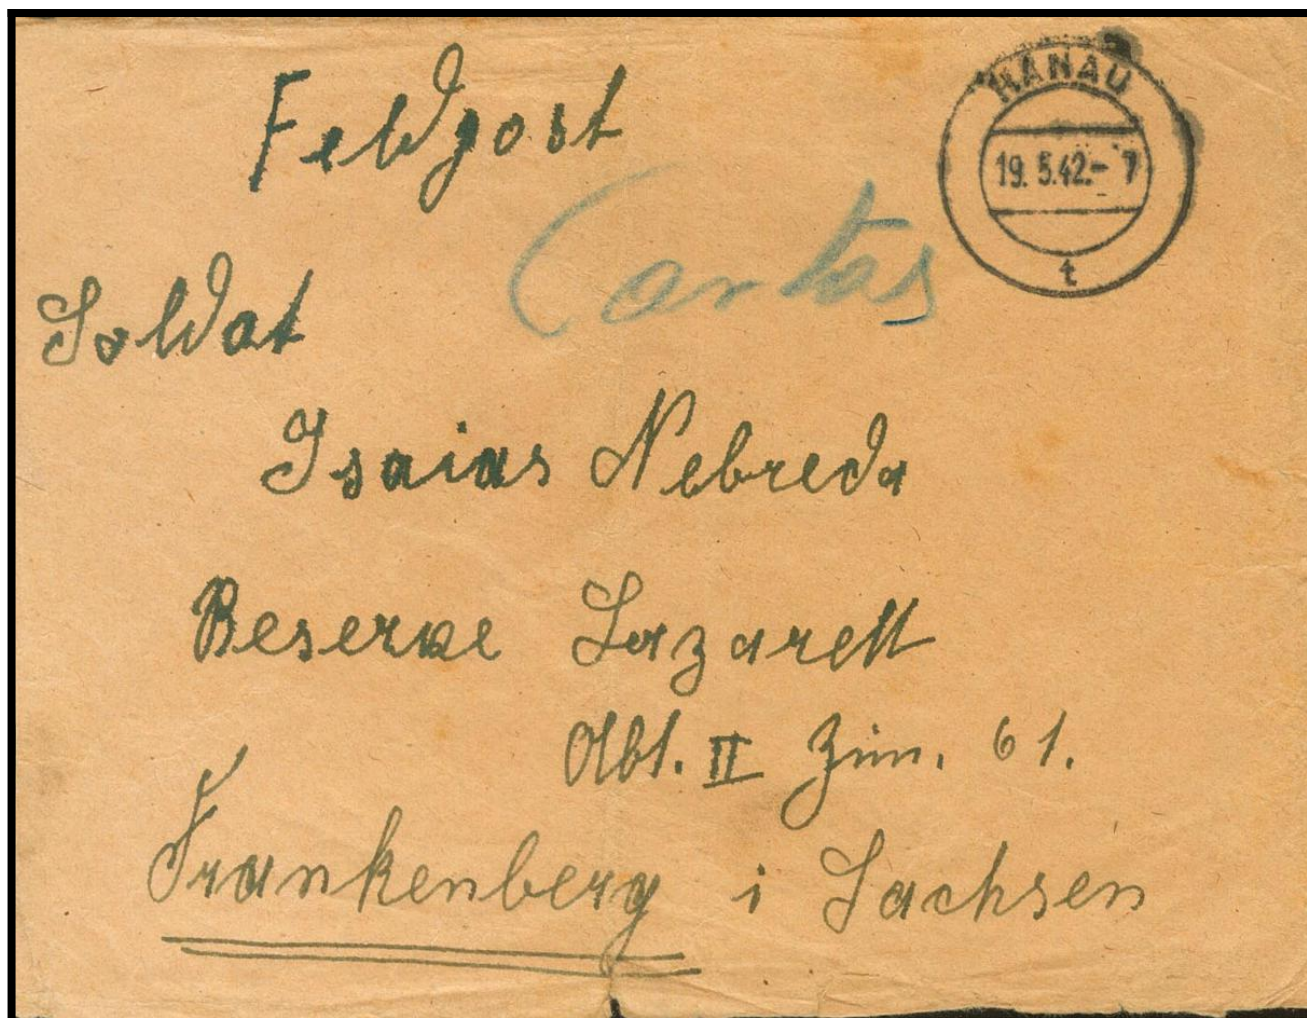 Feldpost
HANAU
19.5.42.- 7
t
Soldat
Isaias Nebreda
Reserve Lazarett
Abt. II Zim. 61.
Frankenberg i Sachsen